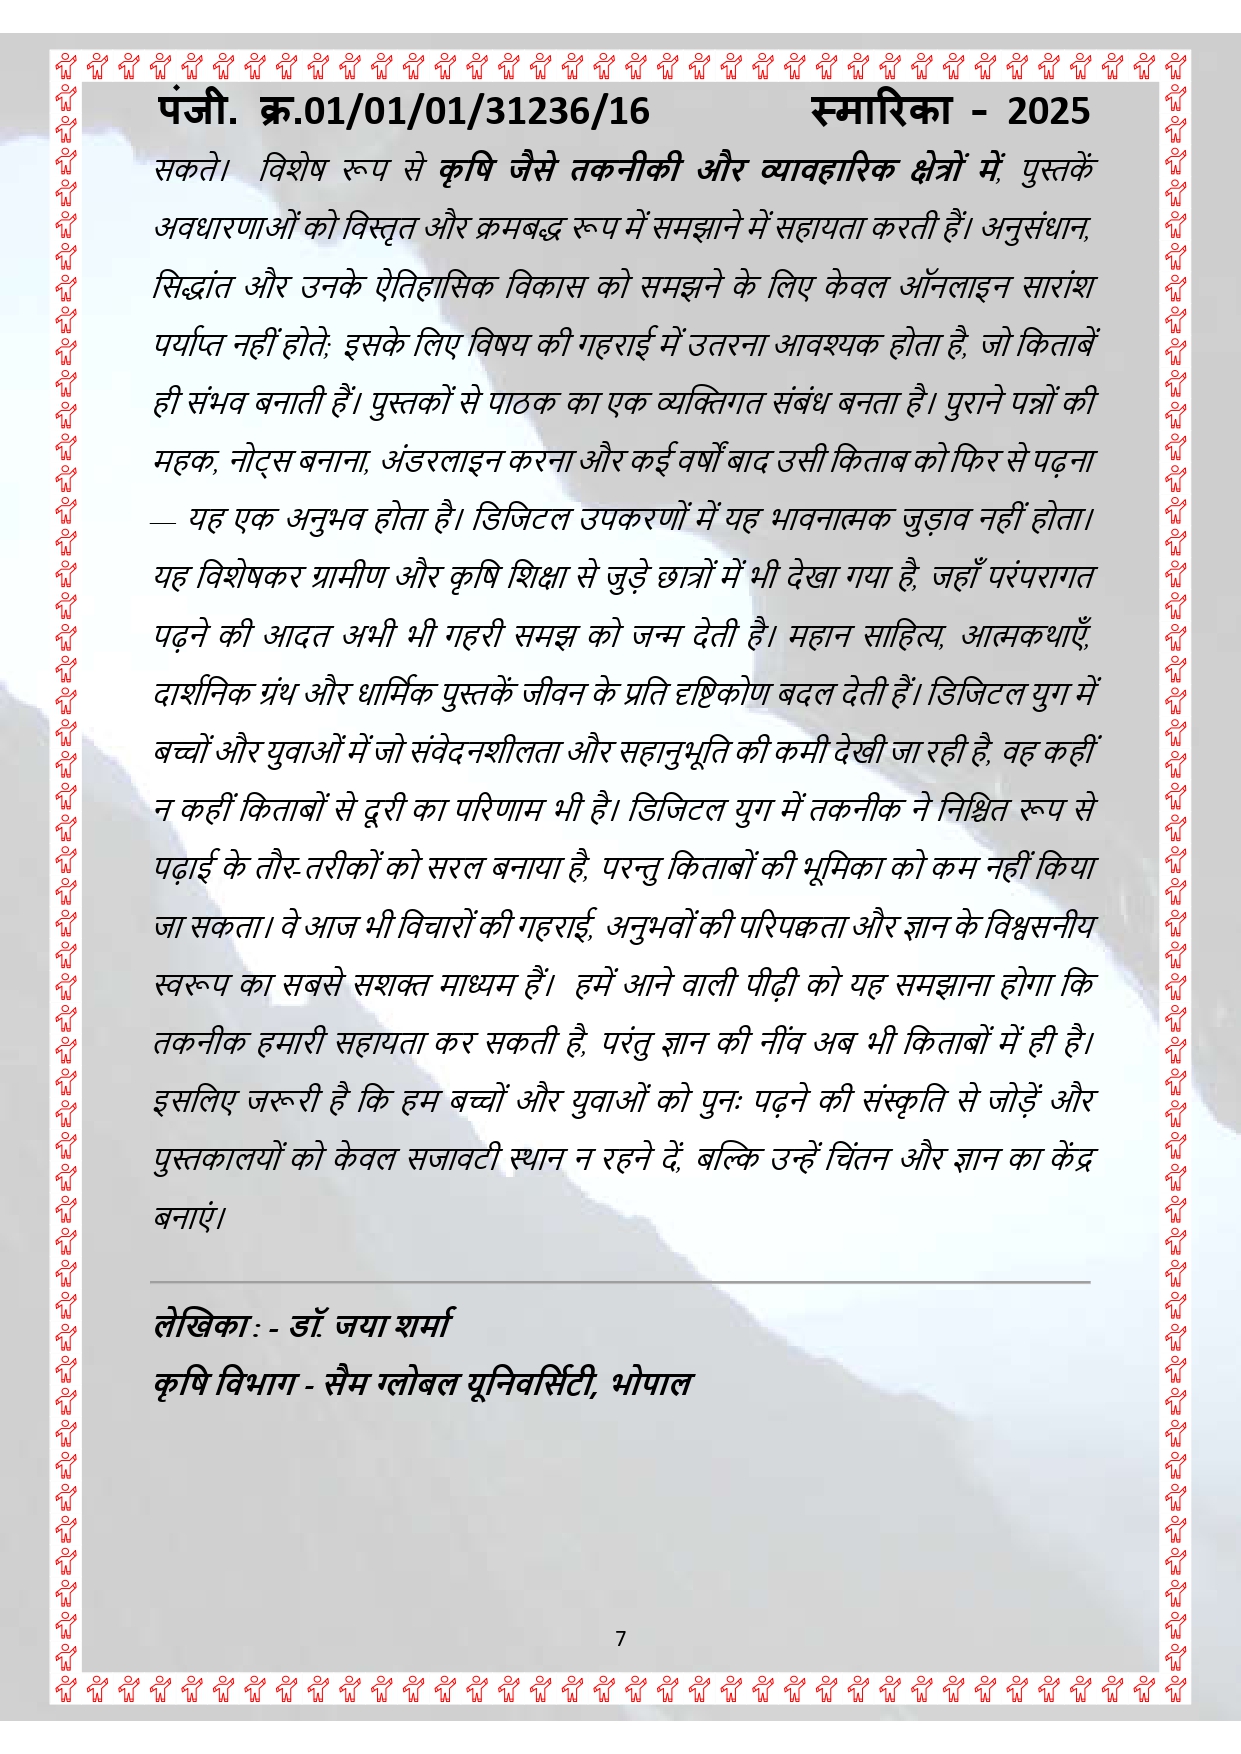 पंजी. क्र.01/01/01/31236/16 स्मारिका - 2025
सकते। विशेष रूप से कृषि जैसे तकनीकी और व्यावहारिक क्षेत्रों में, पुस्तकें
अवधारणाओं को विस्तृत और क्रमबद्ध रूप में समझाने में सहायता करती हैं। अनुसंधान,
सिद्धांत और उनके ऐतिहासिक विकास को समझने के लिए केवल ऑनलाइन सारांश
पर्याप्त नहीं होते; इसके लिए विषय की गहराई में उतरना आवश्यक होता है, जो किताबें
ही संभव बनाती हैं। पुस्तकों से पाठक का एक व्यक्तिगत संबंध बनता है। पुराने पन्नों की
महक, नोट्स बनाना, अंडरलाइन करना और कई वर्षों बाद उसी किताब को फिर से पढ़ना
— यह एक अनुभव होता है। डिजिटल उपकरणों में यह भावनात्मक जुड़ाव नहीं होता।
यह विशेषकर ग्रामीण और कृषि शिक्षा से जुड़े छात्रों में भी देखा गया है, जहाँ परंपरागत
पढ़ने की आदत अभी भी गहरी समझ को जन्म देती है। महान साहित्य, आत्मकथाएँ,
दार्शनिक ग्रंथ और धार्मिक पुस्तकें जीवन के प्रति दृष्टिकोण बदल देती हैं। डिजिटल युग में
बच्चों और युवाओं में जो संवेदनशीलता और सहानुभूति की कमी देखी जा रही है, वह कहीं
न कहीं किताबों से दूरी का परिणाम भी है। डिजिटल युग में तकनीक ने निश्चित रूप से
पढ़ाई के तौर-तरीकों को सरल बनाया है, परन्तु किताबों की भूमिका को कम नहीं किया
जा सकता। वे आज भी विचारों की गहराई, अनुभवों की परिपक्वता और ज्ञान के विश्वसनीय
स्वरूप का सबसे सशक्त माध्यम हैं। हमें आने वाली पीढ़ी को यह समझाना होगा कि
तकनीक हमारी सहायता कर सकती है, परंतु ज्ञान की नींव अब भी किताबों में ही है।
इसलिए जरूरी है कि हम बच्चों और युवाओं को पुनः पढ़ने की संस्कृति से जोड़ें और
पुस्तकालयों को केवल सजावटी स्थान न रहने दें, बल्कि उन्हें चिंतन और ज्ञान का केंद्र
बनाएं।
लेखिका : - डॉ. जया शर्मा
कृषि विभाग - सैम ग्लोबल यूनिवर्सिटी, भोपाल
7